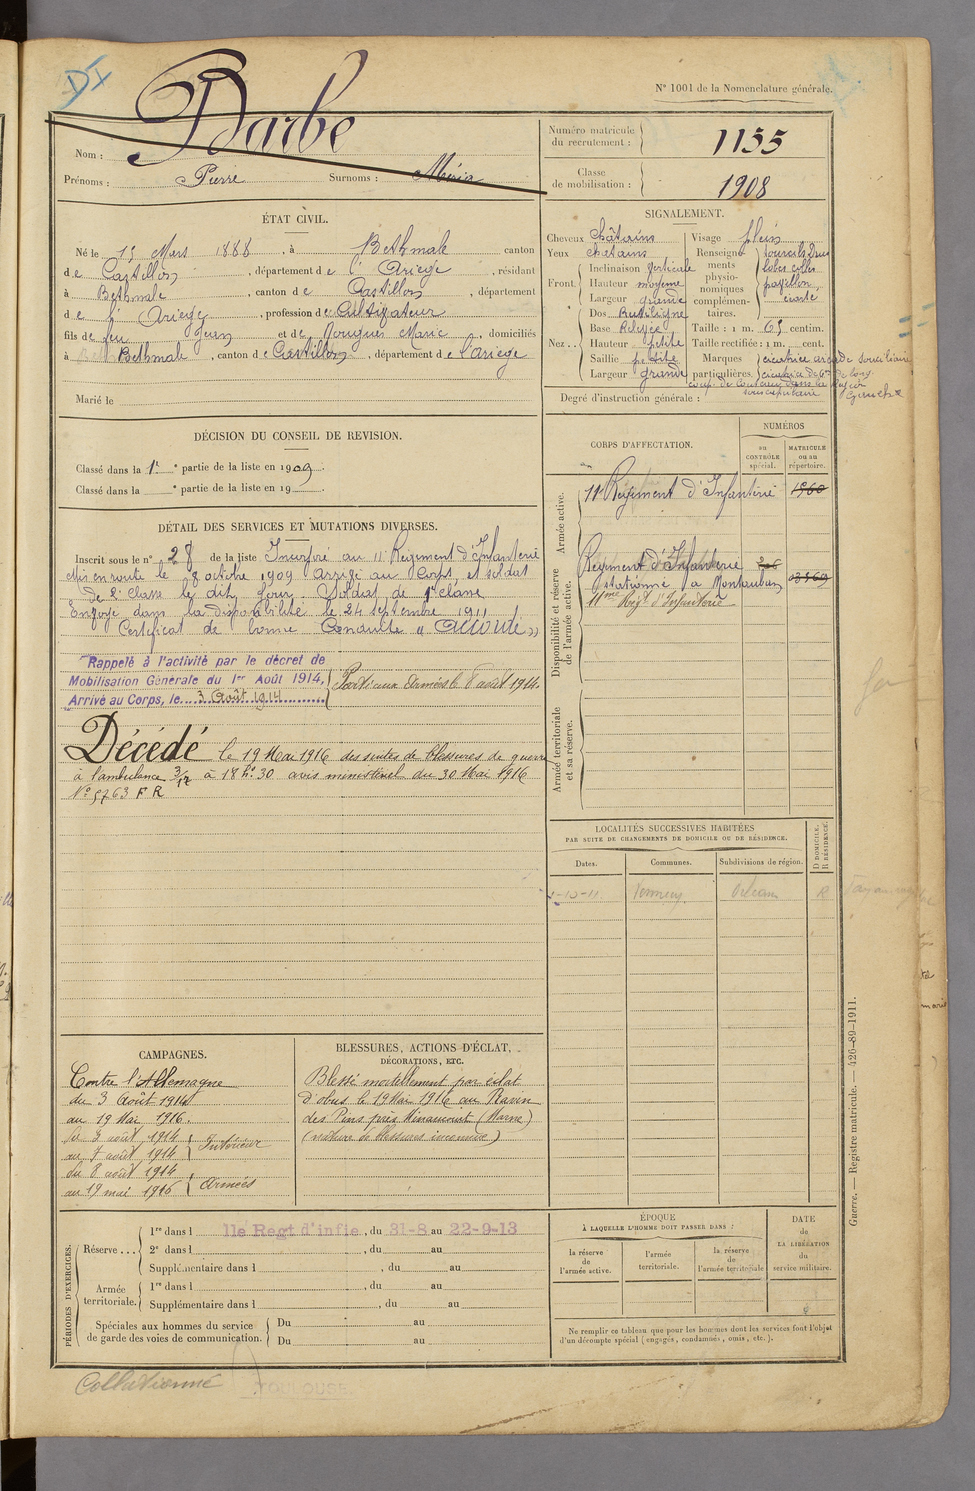 DI
N° 1001 de la Nomenclature générale.
Nom : Barbe
Prénoms : Pierre Surnoms :
Numéro matricule du recrutement : 1155
Classe de mobilisation : 1908
ÉTAT CIVIL.
Né le 15 Mars 1888, à Bethmale canton
de Castillon, département de l'Ariège, résidant
à Bethmale, canton de Castillon, département
de l'Ariège, profession de Cultivateur
fils de feu Jean et de Nougues Marie, domiciliés
à Bethmale, canton de Castillon, département de l'Ariège
Marié le
SIGNALEMENT.
Cheveux châtains
Yeux châtains
Front. Inclinaison Verticale
Hauteur moyenne
Largeur grande
Nez .. Dos Rectiligne
Base Relevée
Hauteur petite
Saillie petite
Largeur grande
Visage plein
Renseignements physionomiques complémentaires.
lobes collés
pavillon
écarté
Taille : 1 m. 65 centim.
Taille rectifiée : 1 m. cent.
Marques particulières. cicatrice arcade sourcilière
cicatrice de de long.
coup de couteau dans la région
gauche
Degré d'instruction générale :
DÉCISION DU CONSEIL DE REVISION.
Classé dans la 1e partie de la liste en 1909.
Classé dans la e partie de la liste en 19 .
CORPS D'AFFECTATION.
NUMÉROS
au CONTRÔLE spécial.
MATRICULE ou au répertoire.
Armée active.
au 11e Régiment d'Infanterie
Disponibilité et réserve de l'armée active.
Régiment d'Infanterie
stationné à Montauban
11ème Régt d'Infanterie
Armée territoriale et sa réserve.
DÉTAIL DES SERVICES ET MUTATIONS DIVERSES.
Inscrit sous le n° 28 de la liste Incorporé au 11e Régiment d'Infanterie
Mis en route le 8 octobre 1909 arrivé au Corps, et soldat
de 2e classe le dit jour. Soldat de 1e classe
Envoyé dans la disponibilité le 24 septembre 1911
Certificat de bonne Conduite « Accordé »
Rappelé à l'activité par le décret de
Mobilisation Générale du 1er Août 1914.
Arrivé au Corps, le 3 Août 1914
Parti aux Armées le 8 août 1914.
Décédé le 19 Mai 1916 des suites de blessures de guerre
à l'ambulance 3/12 à 18 h. 30 avis ministériel du 30 Mai 1916
N° 5763 F R
LOCALITÉS SUCCESSIVES HABITÉES
PAR SUITE DE CHANGEMENTS DE DOMICILE OU DE RÉSIDENCE.
D DOMICILE, R RÉSIDENCE.
Dates. Communes. Subdivisions de région.
Orléans R
CAMPAGNES.
Contre l'Allemagne
du 3 Août 1914
au 19 Mai 1916.
du 3 août 1914
au 7 août 1914 Intérieur
du 8 août 1914
au 19 mai 1916 Armées
BLESSURES, ACTIONS D'ÉCLAT,
DÉCORATIONS, ETC.
Blessé mortellement par éclat
d'obus le 19 Mai 1916 au Ravin
des Pins près Minaucourt (Marne)
(nature de blessures inconnue)
PÉRIODES D'EXERCICES.
Réserve ... 1re dans l 11e Regt d'infie, du 31-8 au 22-9-13
2e dans l , du au
Supplémentaire dans l , du au
Armée territoriale. 1re dans l , du au
Supplémentaire dans l , du au
Spéciales aux hommes du service de garde des voies de communication. Du au
Du au
ÉPOQUE
À LAQUELLE L'HOMME DOIT PASSER DANS :
la réserve de l'armée active.
l'armée territoriale.
la réserve de l'armée territoriale
DATE de LA LIBÉRATION du service militaire.
Ne remplir ce tableau que pour les hommes dont les services font l'objet
d'un décompte spécial (engagés, condamnés, omis, etc.).
Guerre. — Registre matricule. — 426-89-1911.
Collationné
TOULOUSE